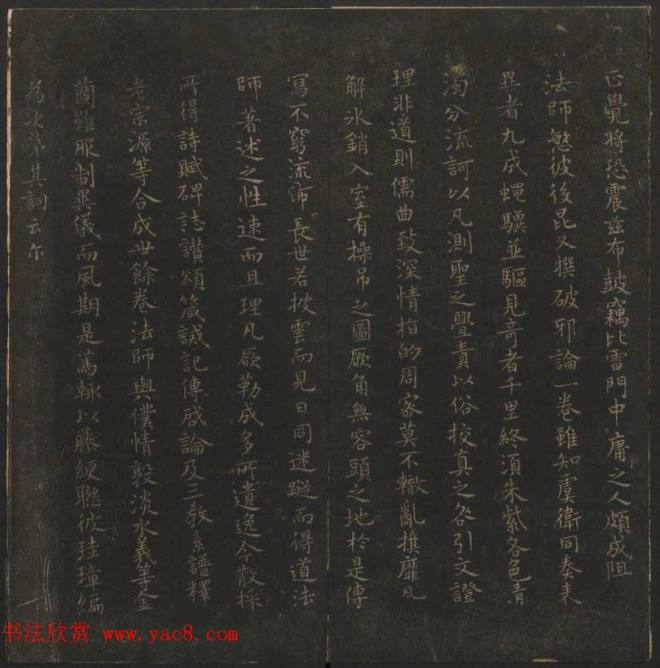 正覺將恐震茲布鼓竊比雷門中庸之人頗成阻
法師慜彼後昆又撰破邪論一卷雖知虞衛同奏表
異者九成蠅驥並驅見奇者千里終須朱紫各色清
濁分流訶以凡測聖之舋責以俗校真之咎引文證
理非道則儒曲致深情指的周密莫不轍亂旗靡瓦
解冰銷入室有操矛之圖厥角無容頭之地於是傳
寫不窮流布長世若披雲而見日同迷蹤而得道法
師著述之性速而且理凡厥勒成多所遺逸今散採
所得詩賦碑誌讚頌箴誡記傳啟論及三教系譜釋
老宗源等合成卅餘卷法師與僕情敦淡水義等金
蘭雖服制異儀而風期是篤輒以藤綆聯彼珪璋編
為次第其詞云尔
书法欣赏 www.yac8.com